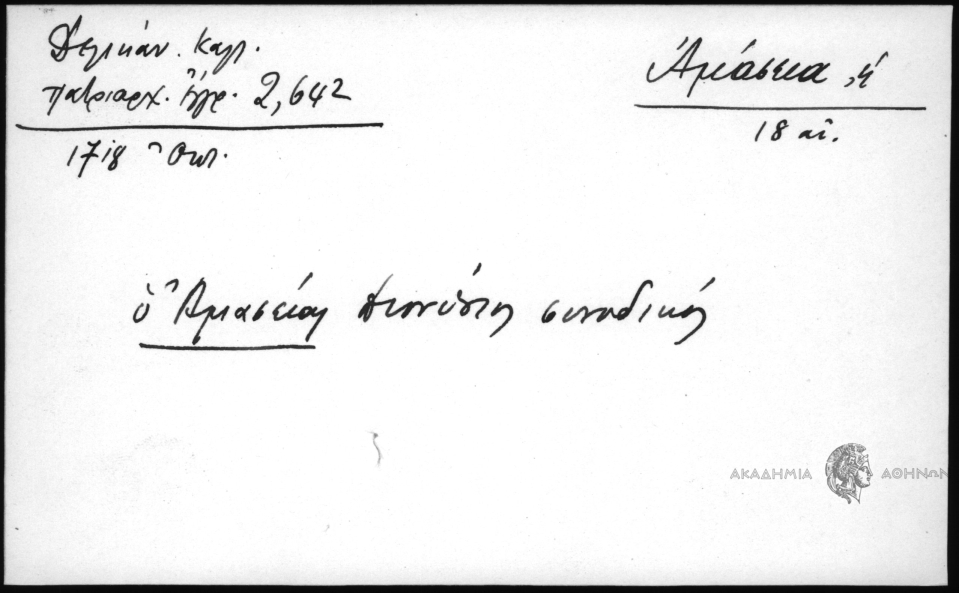 Δελικάν. Καλ.
πατριαρχ. ἔγγρ. 2,642
1718 Ὀκτ.
Ἀμάσεια, ἡ
18 αἰ.
ὁ Ἀμασείας Διονύσιος συνοδικός
ΑΚΑΔΗΜΙΑ ΑΘΗΝΩΝ